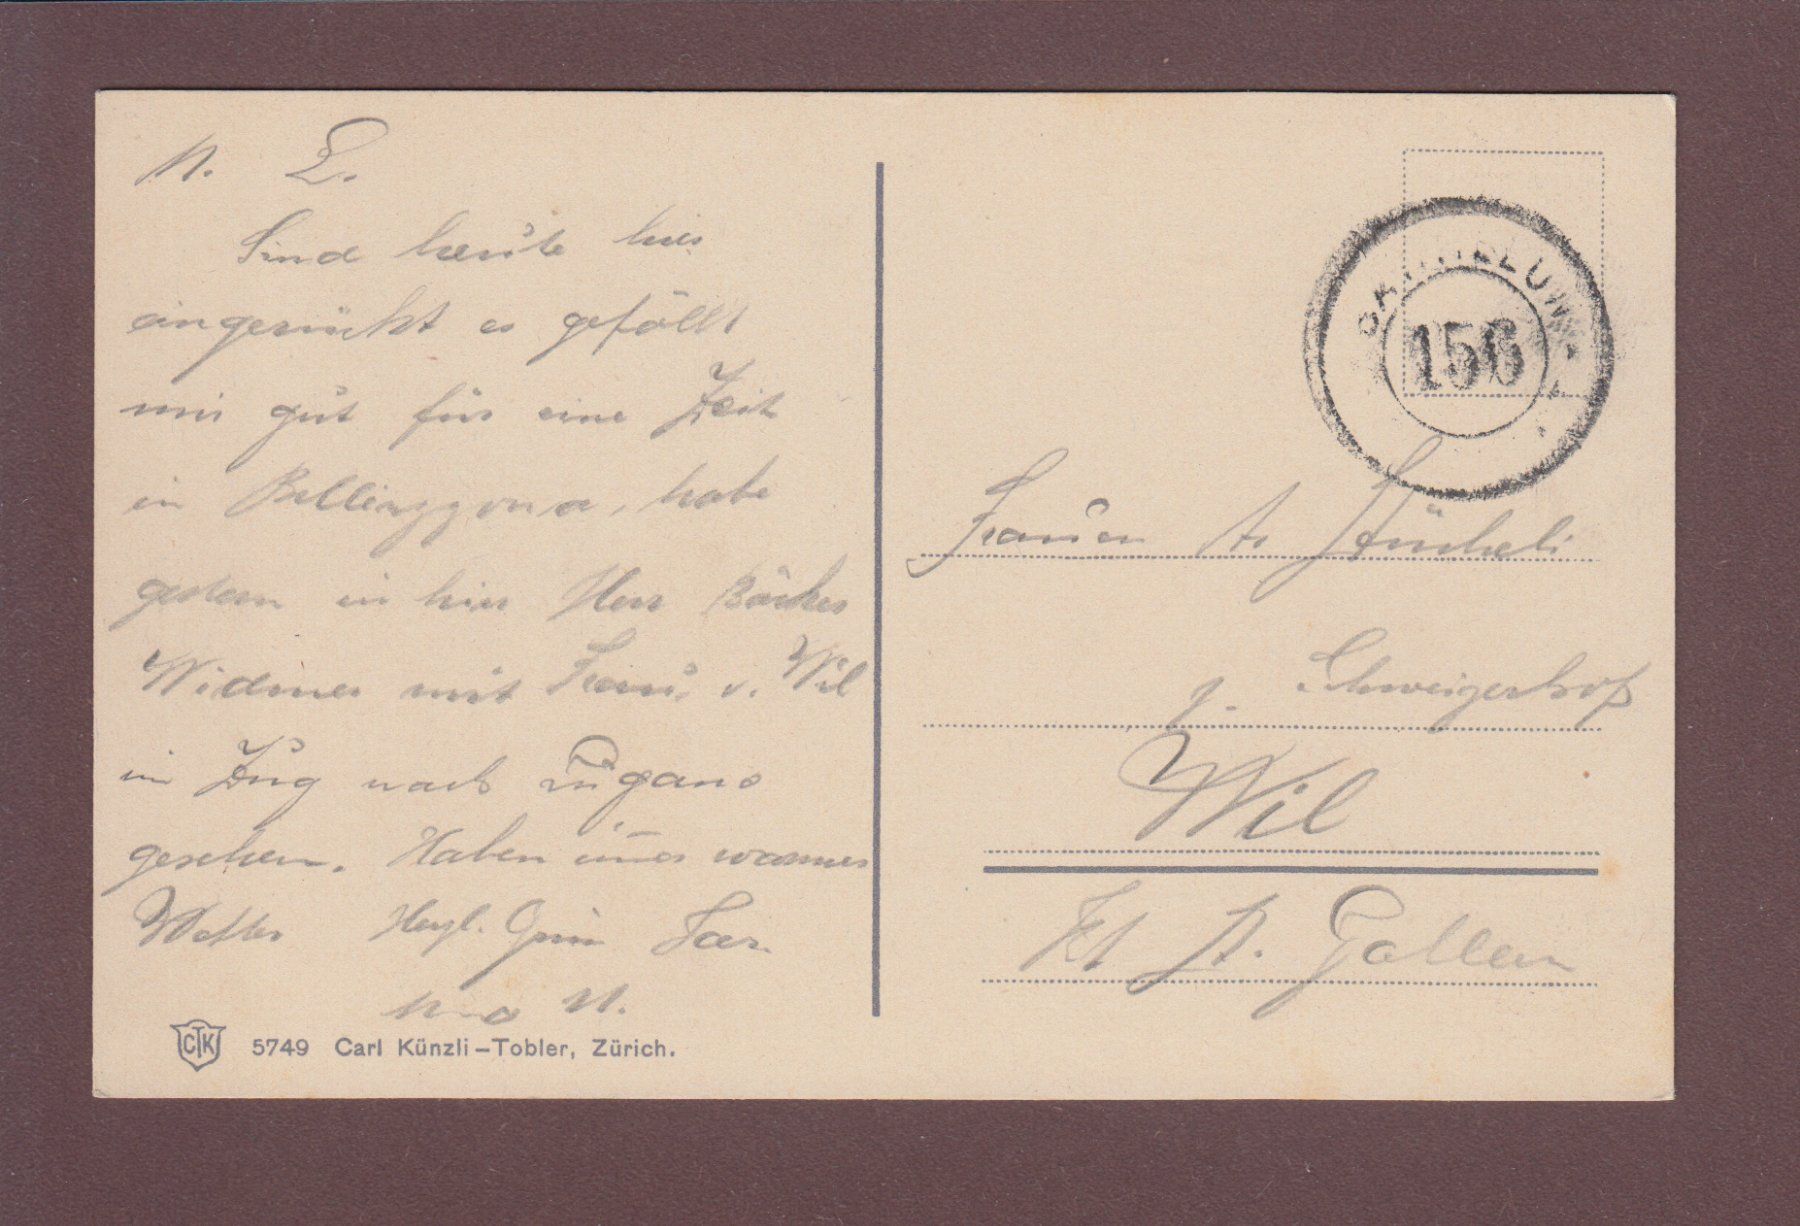 M. L.
Sind heute hier
eingerückt es gefällt
mir gut für eine Zeit
in Bellinzzona, habe
gestern in hier Herr Bäcker
Widmer mit Frau v. Wil
im Zug nach Lugano
gesehen. Haben immer warmes
Wetter Herzl. Grüsse
5749 Carl Künzli-Tobler, Zürich.
CTK
156
Frauen
z. Schweizerhof
Wil
Kt St. Gallen